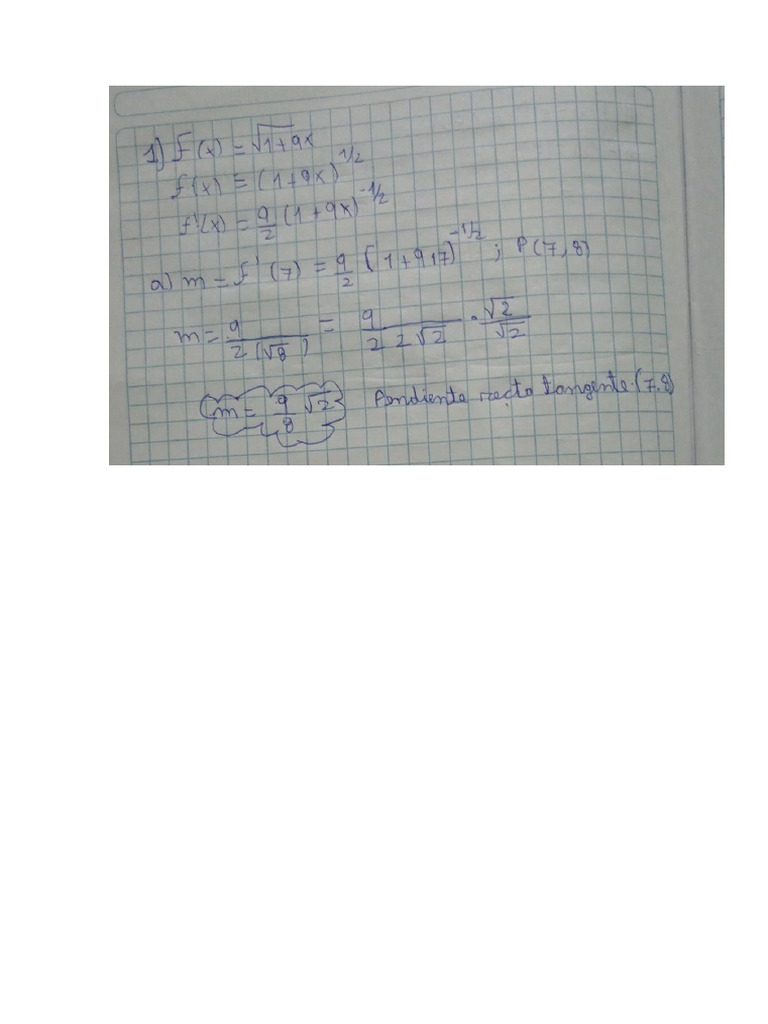 1) f(x) = √1+9x
f(x) = (1+9x)^1/2
f'(x) = 9/2 (1+9x)^-1/2
a) m = f'(7) = 9/2 (1+9.7)^-1/2 ; P(7,8)
m = 9/2(√8) = 9/2 2√2 . √2/√2
m = 9/8 √2 Pendiente recta tangente.(7.8)